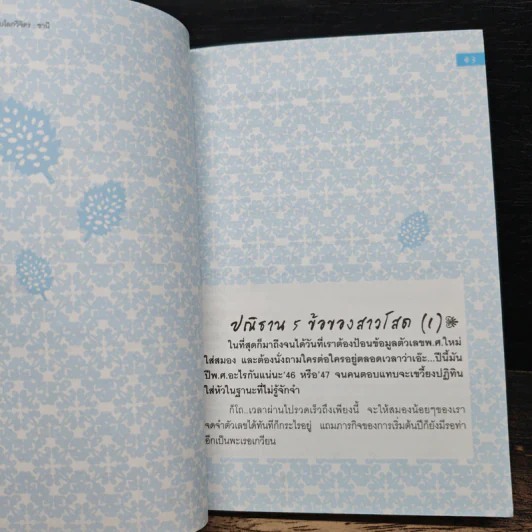 ชานี
ปณิธาน ๕ ข้อของสาวโสด (๑)
ในที่สุดก็มาถึงจนได้วันที่เราต้องป้อนข้อมูลตัวเลขพ.ศ.ใหม่
ใส่สมอง และต้องนั่งถามใครต่อใครอยู่ตลอดเวลาว่าเอ๊ะ...ปีนี้มัน
ปีพ.ศ.อะไรกันแน่นะ'46 หรือ'47 จนคนตอบแทบจะเขวี้ยงปฏิทิน
ใส่หัวในฐานะที่ไม่รู้จักจำ
ก็โถ..เวลาผ่านไปรวดเร็วถึงเพียงนี้ จะให้สมองน้อยๆของเรา
จดจำตัวเลขได้ทันทีก็กระไรอยู่ แถมภารกิจของการเริ่มต้นปีก็ยังมีรอท่า
อีกเป็นพะเรอเกวียน